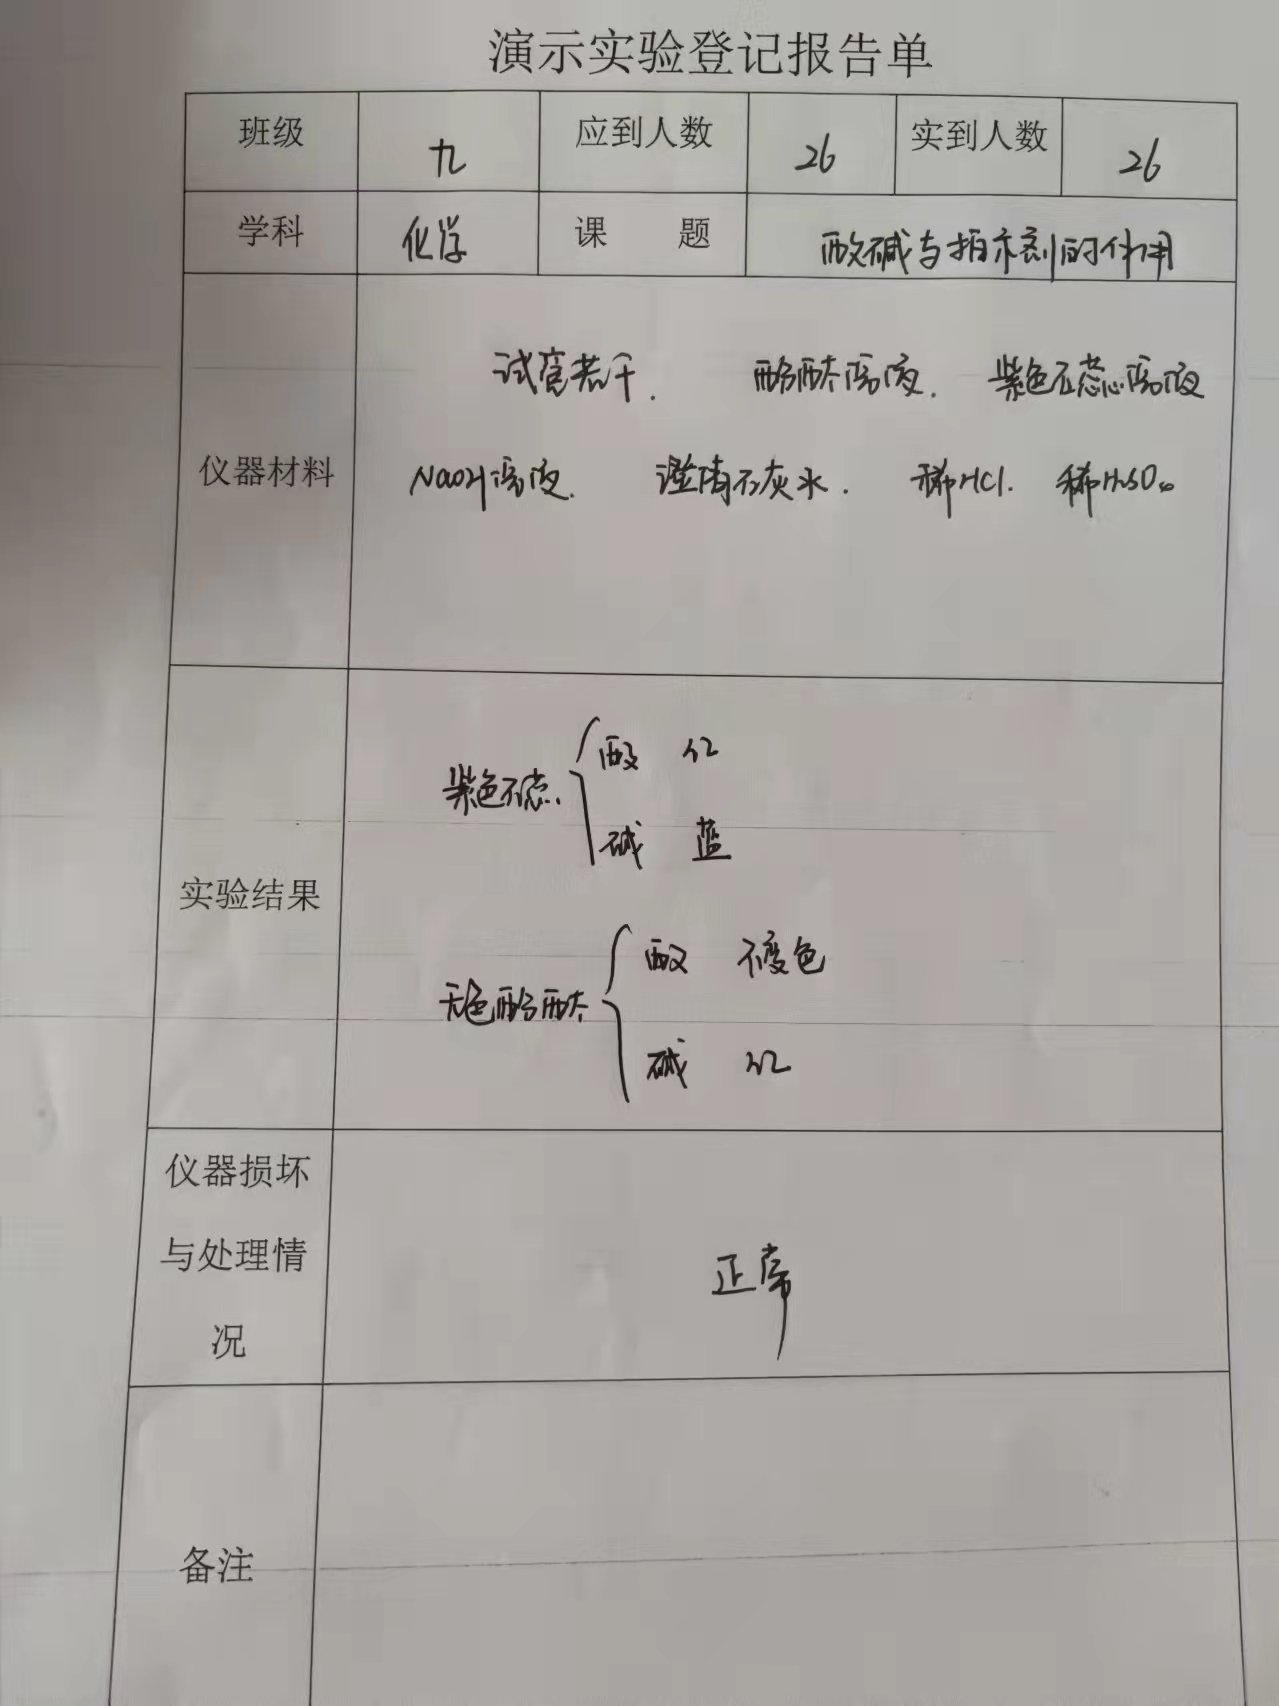 演示实验登记报告单
班级 九 应到人数 26 实到人数 26
学科 化学 课 题 酸碱与指示剂的作用
仪器材料
试管若干. 酚酞溶液. 紫色石蕊溶液
NaOH溶液. 澄清石灰水. 稀HCl. 稀H₂SO₄
实验结果
紫色石蕊
酸 红
碱 蓝
无色酚酞
酸 不变色
碱 红
仪器损坏
与处理情
况
正常
备注